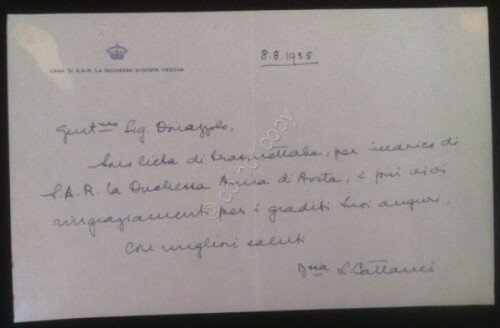 CASA DI S.A.R. LA DUCHESSA D'AOSTA VEDOVA
8.8.1955
Gent.mo Sig. Donazzolo,
Sono lieta di trasmetterLe, per incarico di
S.A.R. la Duchessa Anna d'Aosta, i più vivi
ringraziamenti per i graditi Suoi auguri.
Con migliori saluti
L. Cattanei